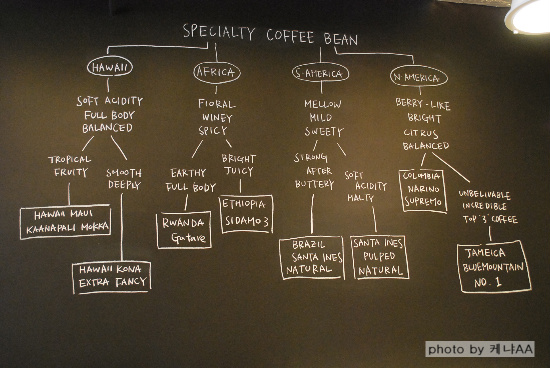 SPECIALTY COFFEE BEAN
HAWAII
SOFT ACIDITY
FULL BODY
BALANCED
TROPICAL
FRUITY
HAWAII MAUI
KAANAPALI MOKKA
SMOOTH
DEEPLY
HAWAII KONA
EXTRA FANCY
AFRICA
FlORAL
WINEY
SPICY
EARTHY
FULL BODY
RWANDA
Gatare
BRIGHT
JUICY
ETHIOPIA
SIDAMO 3
S·AMERICA
MELLOW
MILD
SWEETY
STRONG
AFTER
BUTTERY
BRAZIL
SANTA INES
NATURAL
SOFT
ACIDITY
MALTY
SANTA INES
PULPED
NATURAL
N·AMERICA
BERRY-LIKE
BRIGHT
CITRUS
BALANCED
COLOMBIA
NARINO
SUPREMO
UNBELIVABLE
INCREDIBLE
TOP '3' COFFEE
JAMEICA
BLUEMOUNTAIN
NO. 1
photo by 케냐AA